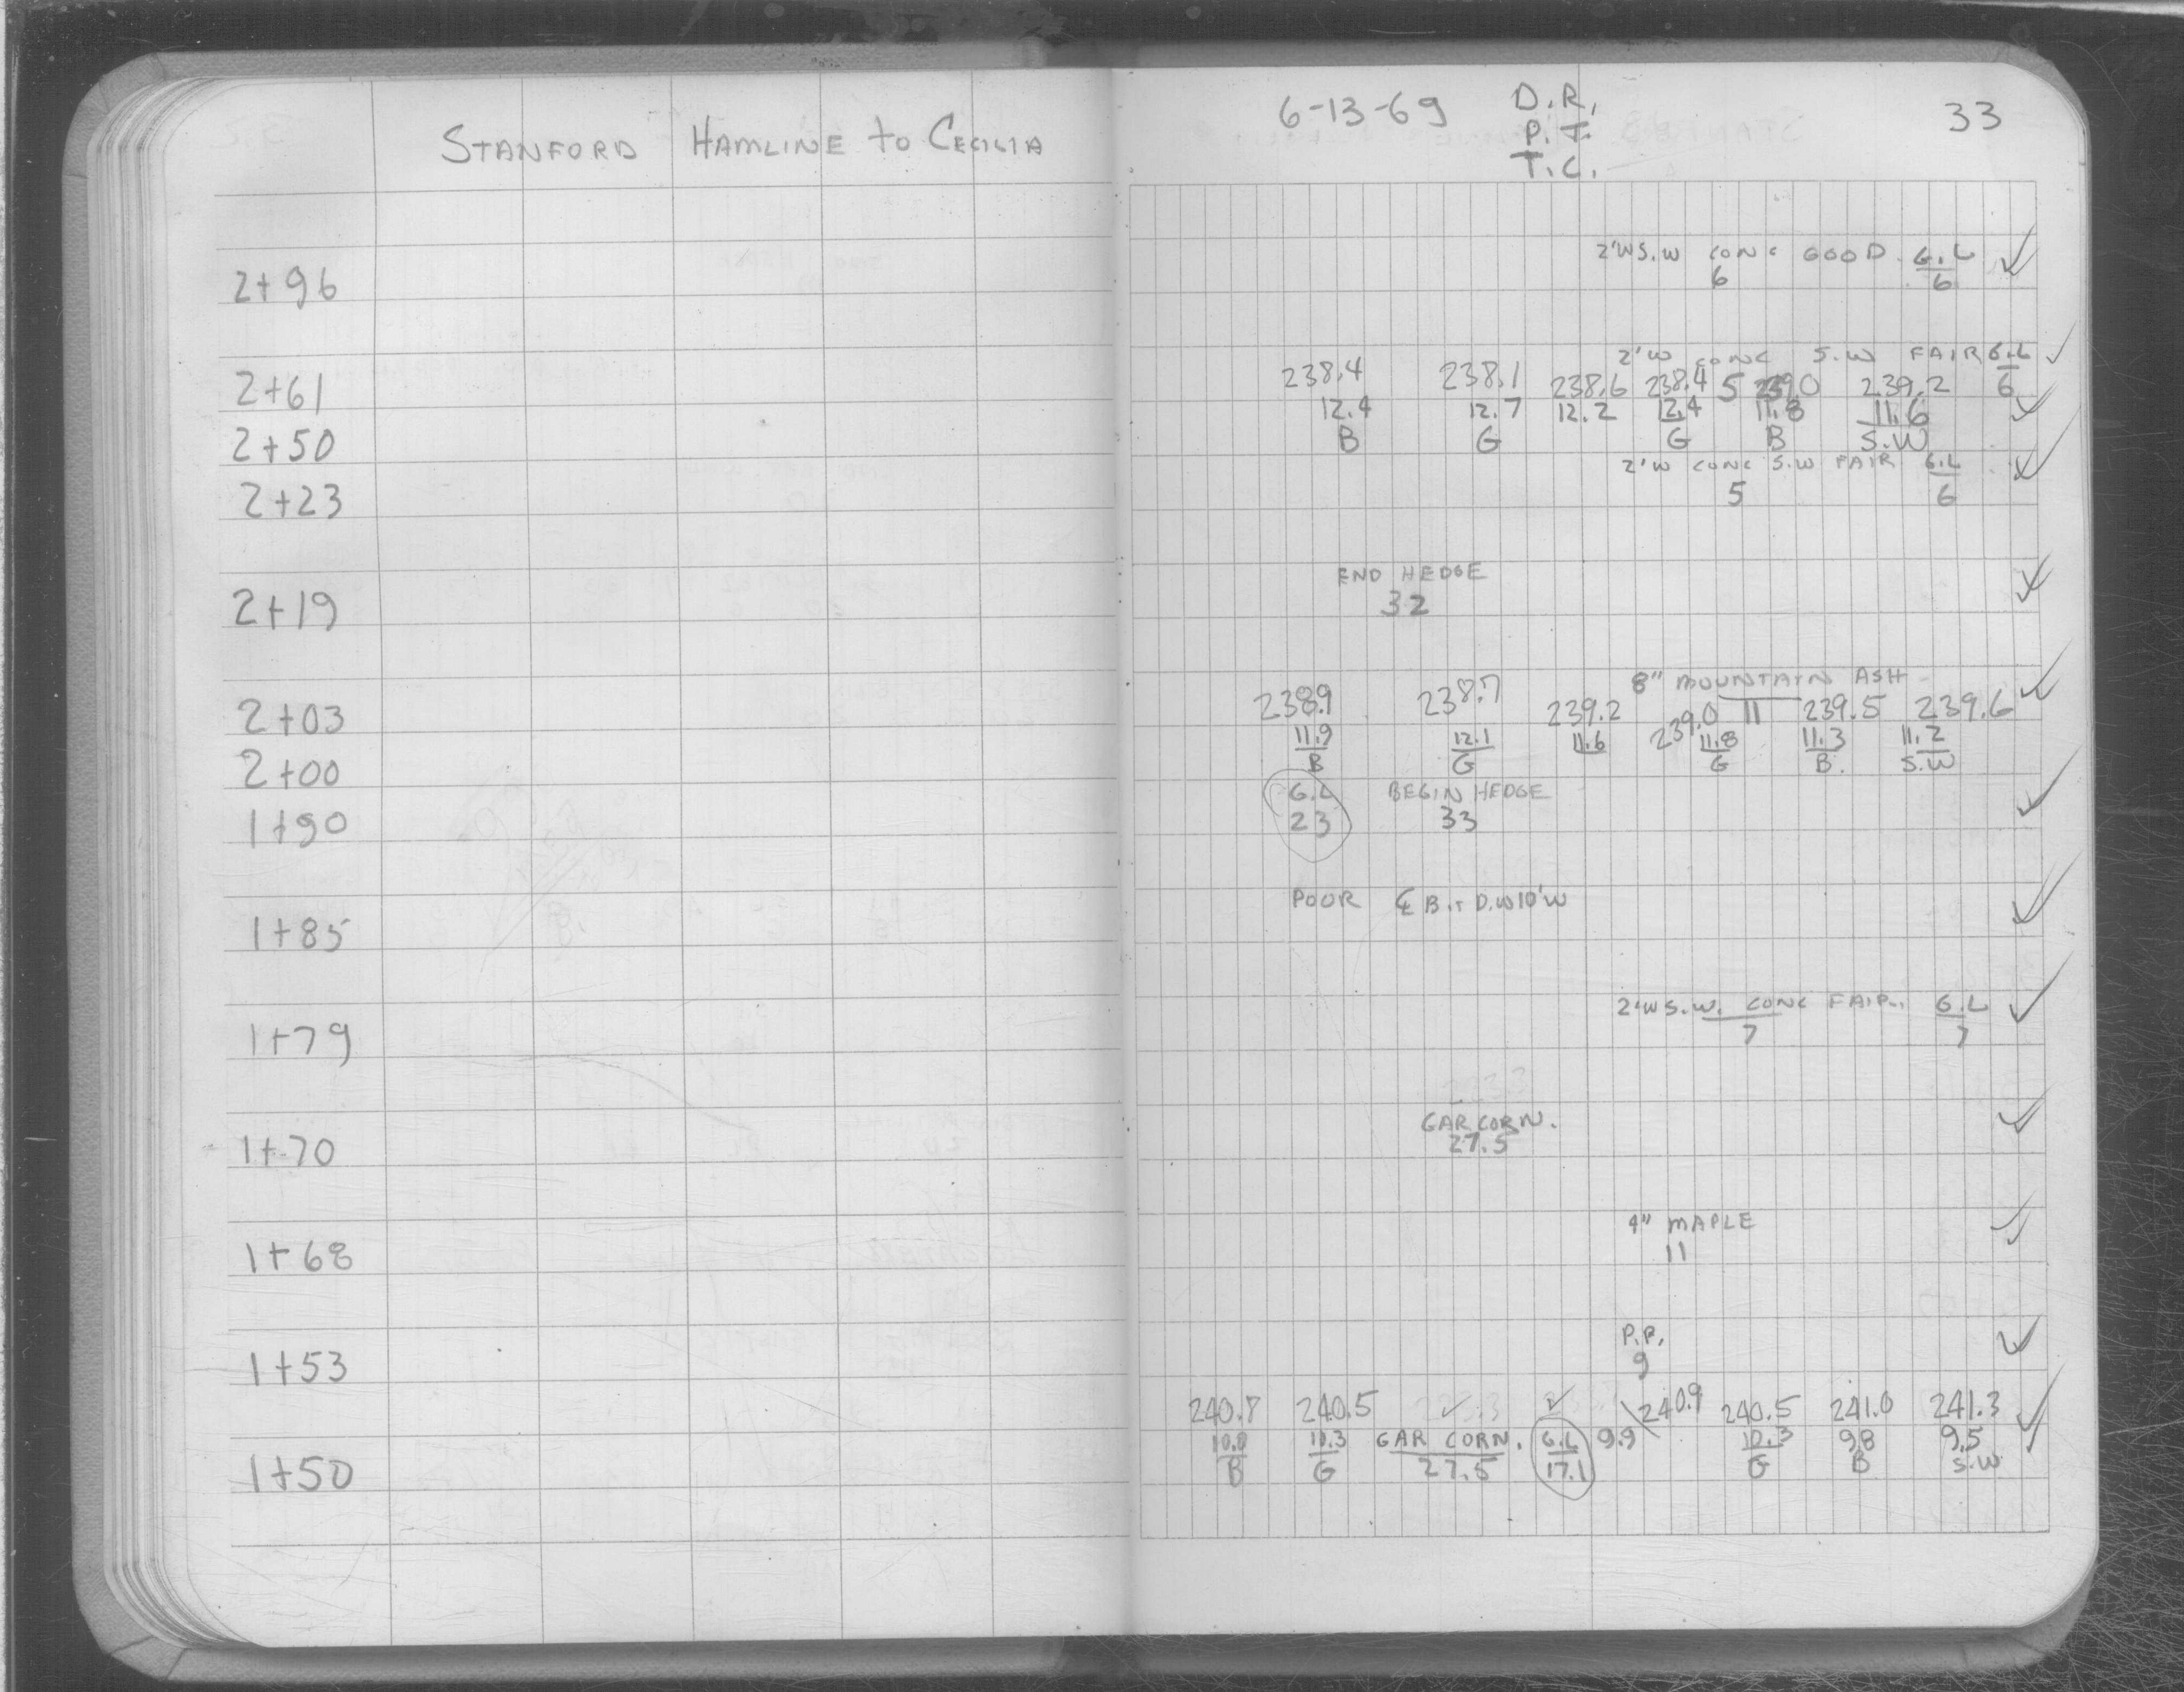 STANFORD HAMLINE to CECILIA
6-13-69 D.R. 33
P.T.
T.C.
2'W S.W CONC GOOD G.L
2+96 6 6
2'W CONC S.W FAIR G.L
2+61 238.4 238.1 238.6 238.4 5 239.0 239.2 6
12.4 12.7 12.2 12.4 11.8 11.6
2+50 B G G B S.W
2'W CONC S.W FAIR G.L
2+23 5 6
END HEDGE
2+19 32
8" MOUNTAIN ASH
2+03 238.9 238.7 239.2 239.0 11 239.5 239.6
11.9 12.1 11.6 11.8 11.3 11.2
2+00 B G G B. S.W
G.L BEGIN HEDGE
1+90 23 33
POOR ℄ BIT D.W 10'W
1+85
2'W S.W. CONC FAIR.. G.L
1+79 7 7
GAR CORN.
1+70 27.5
4" MAPLE
1+68 11
P.P.
1+53 9
240.7 240.5 240.9 240.5 241.0 241.3
10.3 GAR CORN. G.L 9.9 10.3 9.8 9.5
1+50 B G 27.5 17.1 G B S.W